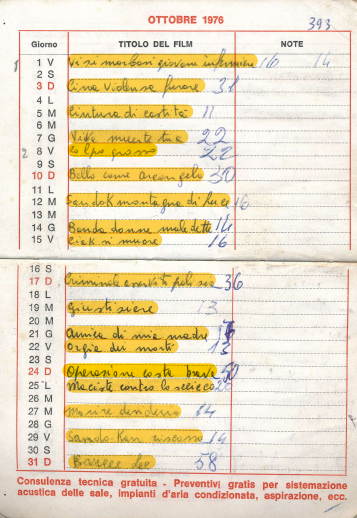 OTTOBRE 1976 393
Giorno TITOLO DEL FILM NOTE
1 V Visi morbosi giovane infermiera 16 14
2 S
3 D Cina violenza furore 31
4 L
5 M Cintura di castità 11
6 M
7 G Vita mente tua 22
2 8 V Colpo grosso 22
9 S
10 D Bello come arcangelo 30
11 L
12 M Sandok montagna di luce 16
13 M
14 G Banda donne maledette 14
15 V Ciak si muore 16
16 S
17 D Criminale polizia 36
18 L
19 M Giustiziere 13
20 M
21 G Amica di mia madre
22 V Orgia dei morti 13
23 S
24 D Operazione costa brava 50
25 L Maciste contro lo sceicco
26 M
27 M 14
28 G
29 V riscossa 14
30 S
31 D Bruce Lee 58
Consulenza tecnica gratuita - Preventivi gratis per sistemazione
acustica delle sale, impianti d'aria condizionata, aspirazione, ecc.